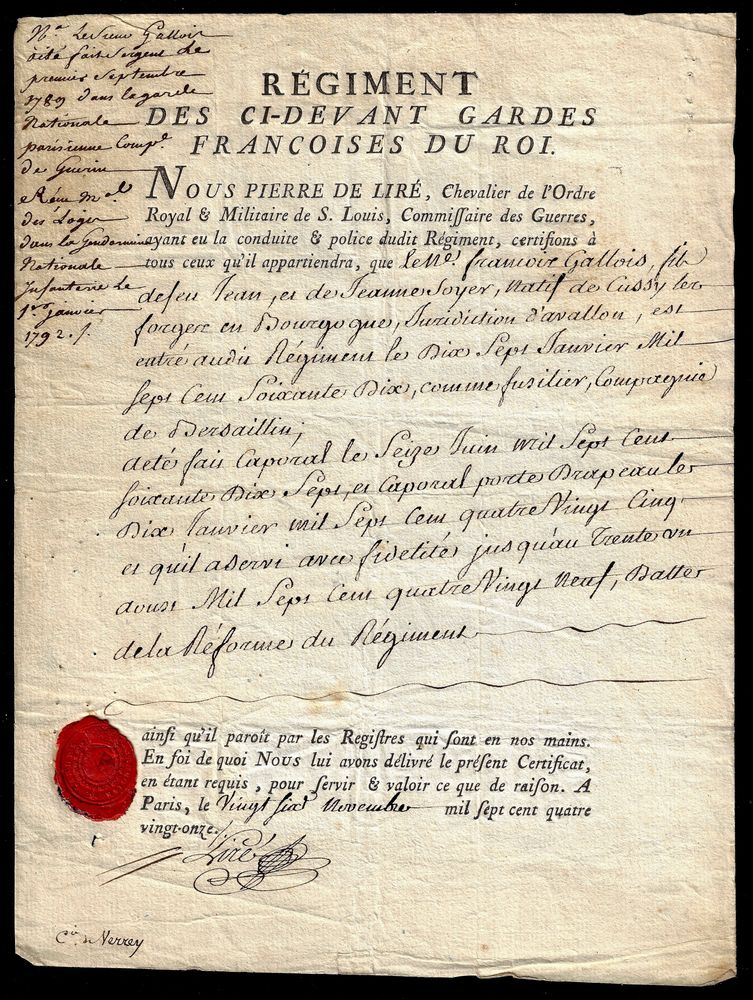 Nᵃ Le Sieur Gallois
a été fait Sergent le
premier Septembre
1789 dans la garde
Nationale
parisienne Compᵉ
de Guerin
des Loges
dans la Gendarmerie
Nationale
Infanterie le
1ᵉʳ janvier
1792 ./.
RÉGIMENT
DES CI-DEVANT GARDES
FRANCOISES DU ROI.
NOUS PIERRE DE LIRÉ, Chevalier de l'Ordre
Royal & Militaire de S. Louis, Commiſſaire des Guerres,
ayant eu la conduite & police dudit Régiment, certifions à
tous ceux qu'il appartiendra, que Le Nᵉ. francois Gallois, fils
de feu Jean, et de Jeanne Soyer, Natif de Cussy les
forges en Bourgogne, Juridiction d'avallon, est
entré audit Régiment le Dix Sept Janvier Mil
Sept Cent Soixante Dix, comme fusilier, Compagnie
de Bersaillin;
a été fait Caporal le Seize Juin mil Sept Cent
Soixante Dix Sept, et Caporal porte Drapeau le
Dix Janvier mil Sept Cent quatre Vingt Cinq
et qu'il a servi avec fidelité jusqu'au Trente un
aoust Mil Sept Cent quatre Vingt Neuf, Datte
de la Réforme du Régiment
ainſi qu'il paroît par les Regiſtres qui ſont en nos mains.
En foi de quoi NOUS lui avons délivré le préſent Certificat,
en étant requis, pour ſervir & valoir ce que de raiſon. A
Paris, le Vingt six Novembre mil ſept cent quatre
vingt-onze.
Liré
de Nerrey